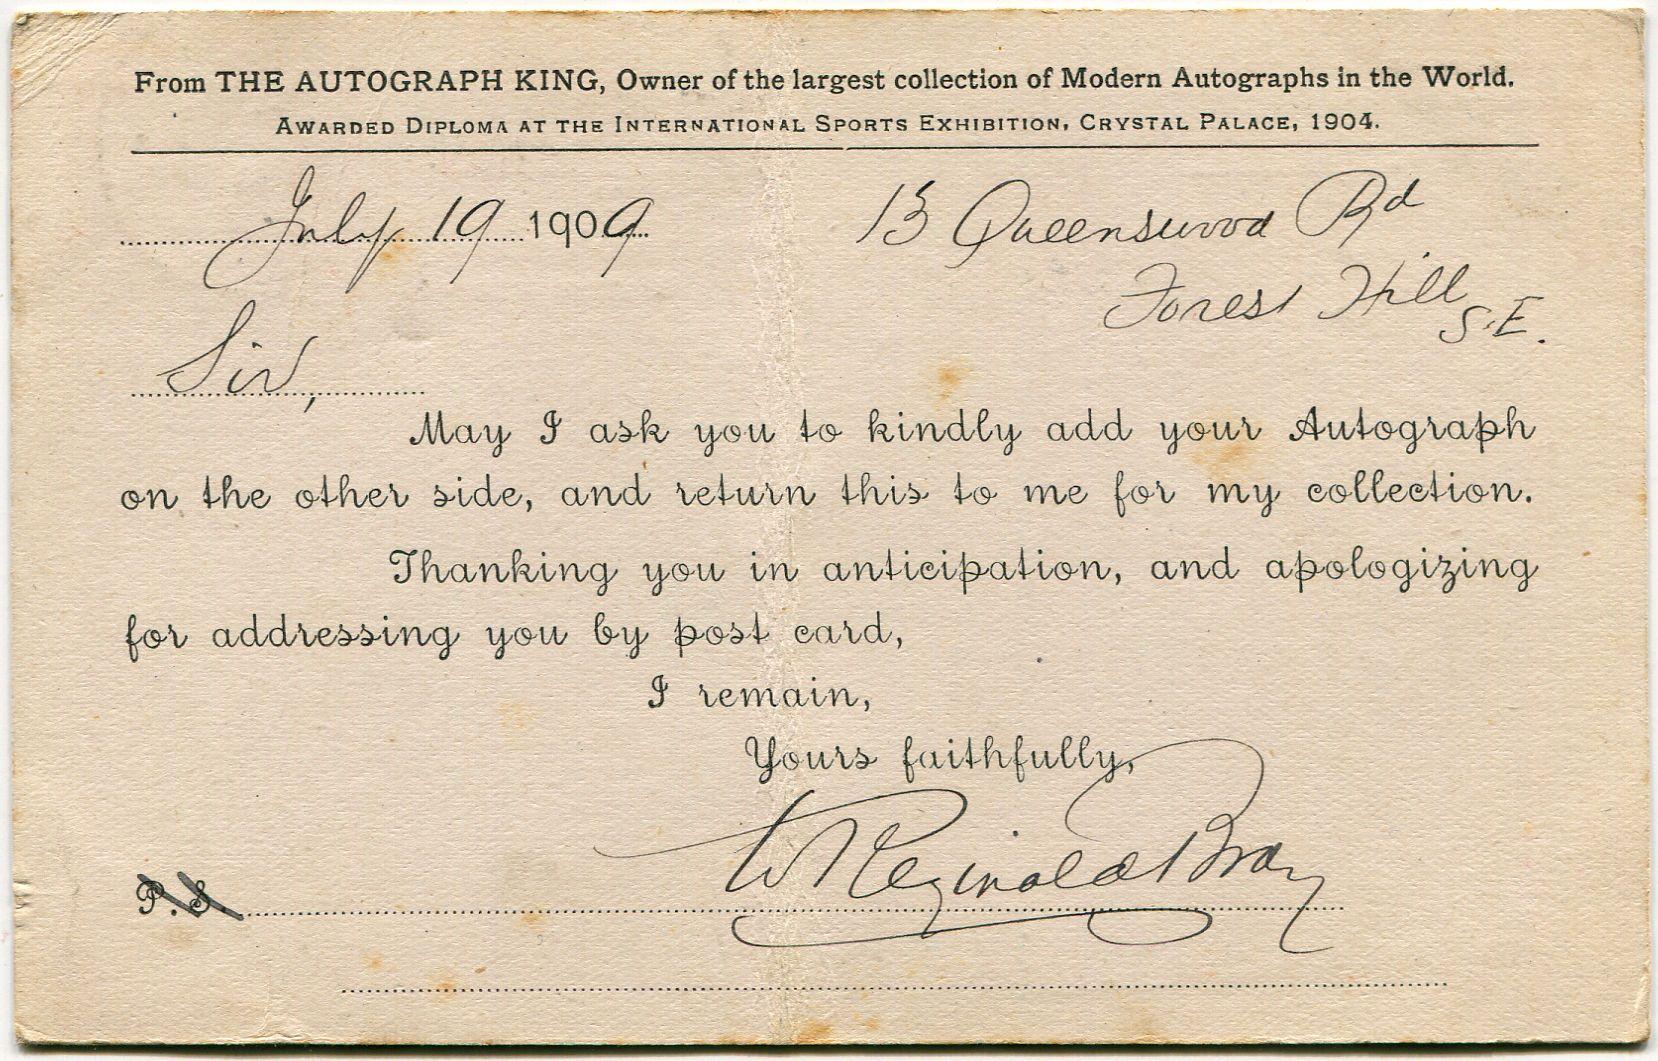 From THE AUTOGRAPH KING, Owner of the largest collection of Modern Autographs in the World.
AWARDED DIPLOMA AT THE INTERNATIONAL SPORTS EXHIBITION, CRYSTAL PALACE, 1904.
July 19 1909
13 Queenswood Rd
Forest Hill
S.E.
Sir,
May I ask you to kindly add your Autograph
on the other side, and return this to me for my collection.
Thanking you in anticipation, and apologizing
for addressing you by post card,
I remain,
Yours faithfully,
W Reginald Bray
P.S.